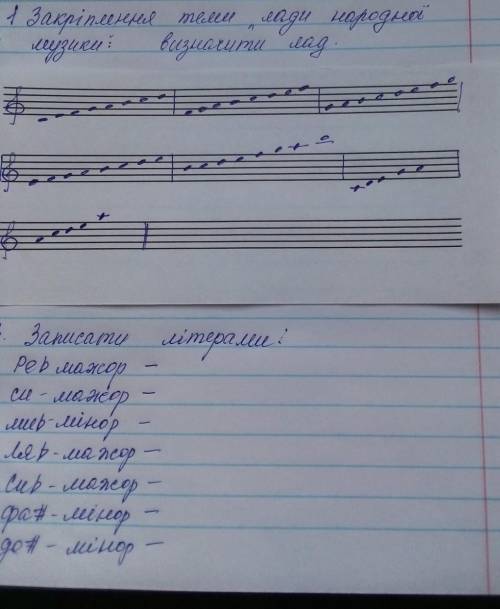 1 Закріплення теми „лади народної
музики": визначити лад.
Записати літерами:
Ре♭ мажор –
си - мажор –
ми♭-мінор –
Ля♭-мажор –
Си♭-мажор –
фа# - мінор –
до# - мінор –